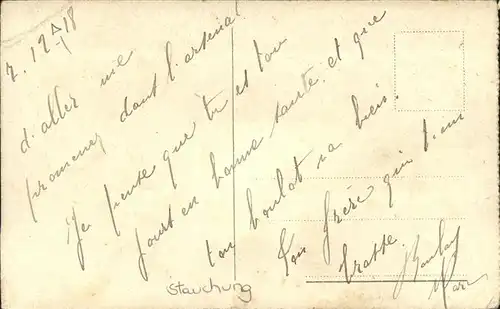 d'aller me
promener dans l'arsenal
Je pense que tu et ton
jours en bonne santé et que
ton boulot va bien.
Ton frère qui t'em
brasse.
Stauchung